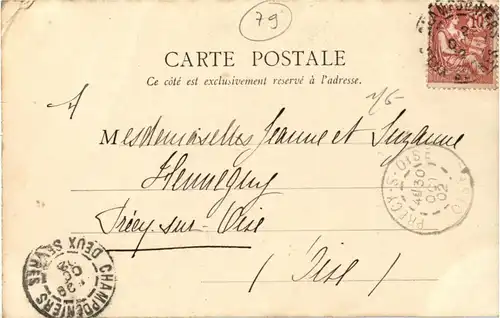 79
CARTE POSTALE
Ce côté est exclusivement reservé à l'adresse.
Mesdemoiselles Jeanne et Suzanne
Henneguy
Précy-sur-Oise
(Oise)
PRÉCY-S-OISE
30
02
CHAMPDENIERS DEUX SÈVRES
10